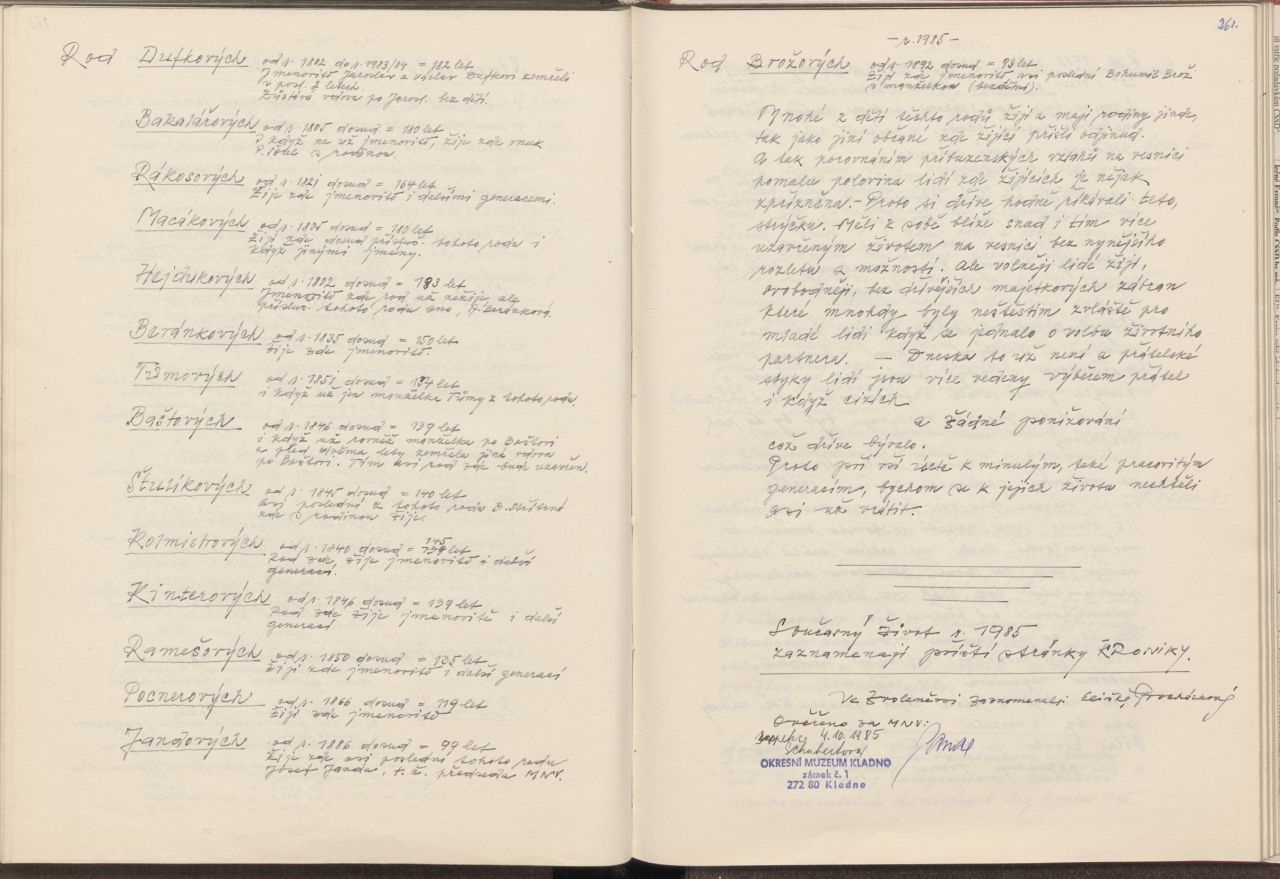 Rod Dufkových od r. 1802 do r. 1983/84 = 182 let
Jmenovitě Jaroslav a Václav Dufkovi zemřeli
v posl. 2 letech.
Zůstává vdova po Jarosl. bez dětí.
Bakalářových od r. 1805 dosud = 180 let
I když ne už jmenovitě, žije zde vnuk
s rodinou.
Rákosových od r. 1821 dosud = 164 let
Žije zde jmenovitě i dalšími generacemi.
Macákových od r. 1805 dosud = 180 let
Žijí zde dosud přísluš. tohoto rodu i
když jinými jmény.
Hejdukových od r. 1802 dosud = 183 let
Jmenovitě zde rod už nežije ale
přísluš. tohoto rodu ano, Beránková.
Beránkových od r. 1835 dosud = 150 let
žije zde jmenovitě.
Tůmových od r. 1851 dosud = 134 let
i když už jen manželka Tůmy z tohoto rodu
Baštových od r. 1846 dosud = 139 let
i když už rovněž manželka po Baštovi
a před dvěma lety zemřela jiná vdova
po Baštovi. Tím asi rod zde bude uzavřen.
od r. 1845 dosud = 140 let
Asi poslední z tohoto rodu
zde s rodinou žije.
Rotmistrových od r. 1840 dosud = 145 let
Rod zde, žije jmenovitě i další
generací.
Kinterových od r. 1846 dosud = 139 let
Rod zde žije jmenovitě i další
generací
Ramešových od r. 1850 dosud = 135 let
Žijí zde jmenovitě i další generací
Pocnerových od r. 1866 dosud = 119 let
Žijí zde jmenovitě
Jandových od r. 1886 dosud = 99 let
Žije zde asi poslední tohoto rodu
Josef Janda, t. č. předseda MNV.
261.
- r. 1985 -
Rod Brožových od r. 1892 dosud = 93 let
Žijí zde jmenovitě asi poslední Bohumil Brož
s manželkou (bezdětní).
Mnohé z dětí těchto rodů žijí a mají rodiny jinde,
tak jako jiní občané zde žijící přišli odjinud.
A tak porovnáním příbuzenských vztahů na vesnici
pomalu polovina lidí zde žijících je nějak
zpřízněna. - Proto si dříve hodně říkávali teto,
strýčku. Měli k sobě blíže snad i tím více
uzavřeným životem na vesnici bez nynějšího
rozletu a možností. Ale volněji lidé žijí,
svobodněji, bez dřívějších majetkových zábran
které mnohdy byly neštěstím zvláště pro
mladé lidi když se jednalo o volbu životního
partnera. - Dneska to už není a přátelské
styky lidí jsou více vedeny výběrem přátel
i když cizích
a žádné ponižování
což dříve bývalo.
Proto při vší úctě k minulým, také pracovitým
generacím, bychom se k jejich životu nechtěli
asi už vrátit.
Současný život r. 1985
zaznamenají příští stránky kroniky.
Ve Zvoleněvsi zaznamenala Procházková
Ověřeno za MNV:
4. 10. 1985
Schubertová
OKRESNÍ MUZEUM KLADNO
zámek č. 1
272 80 Kladno